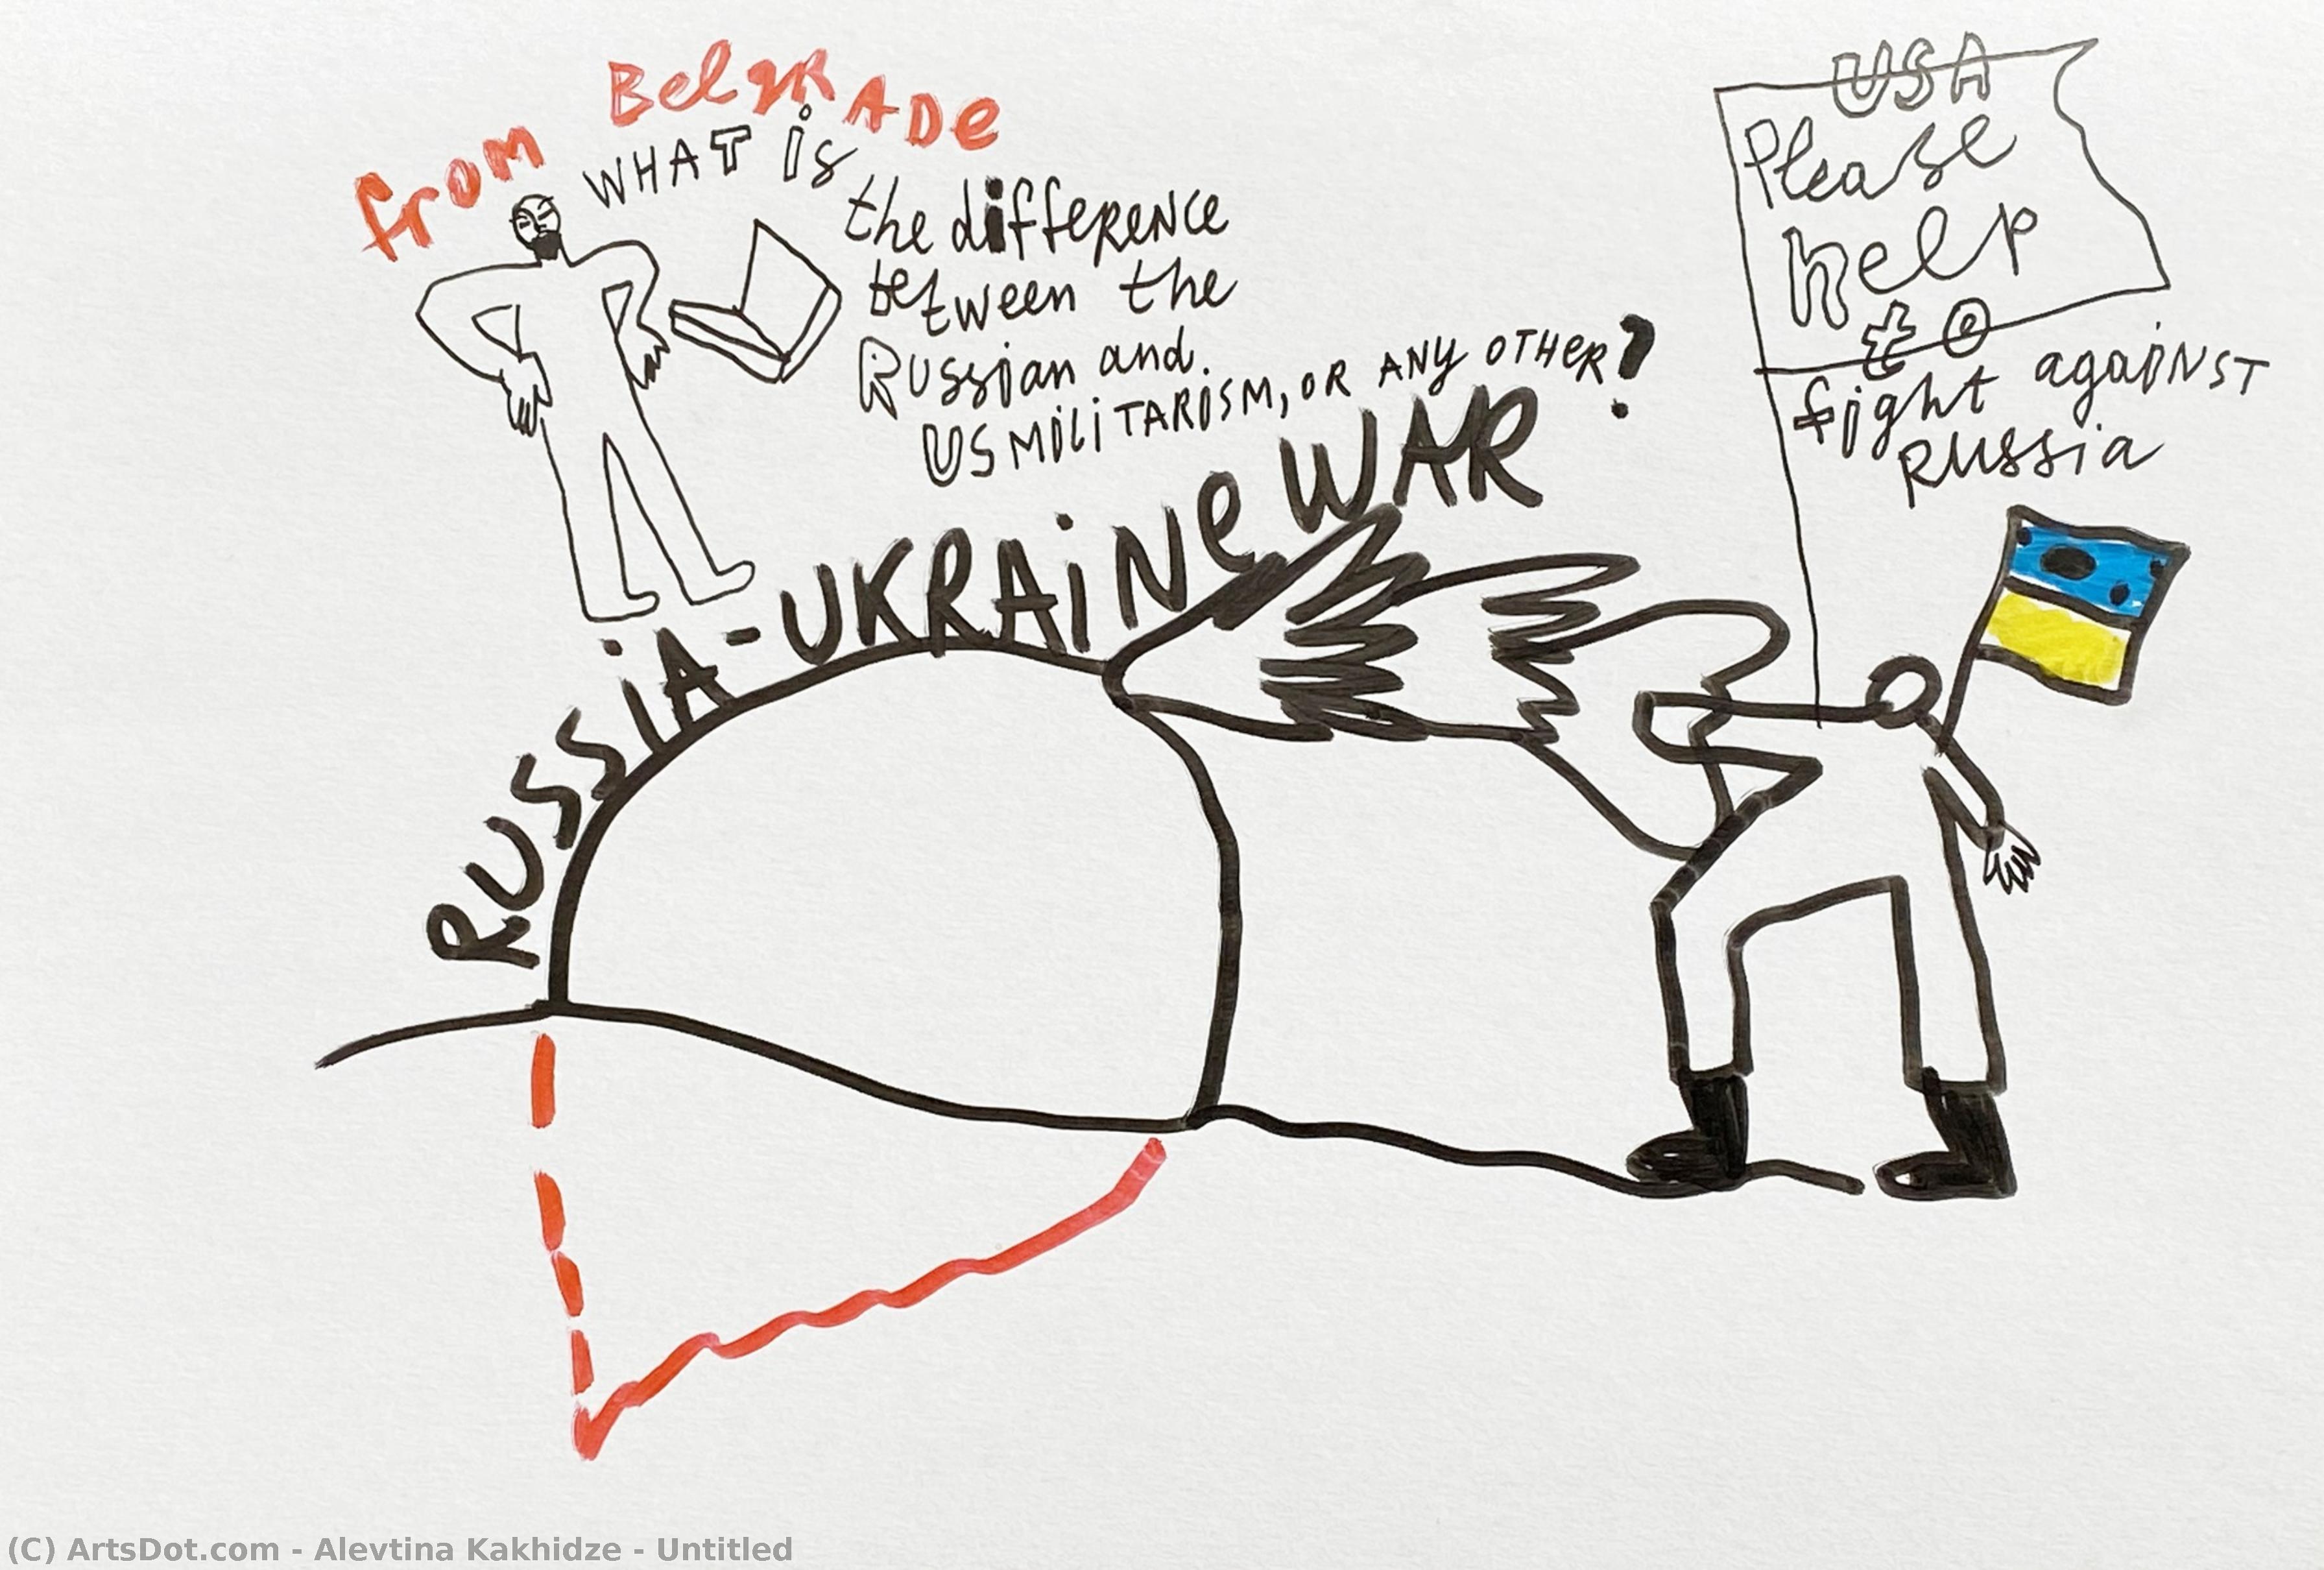 from BelgRADe
WHAT is
the difference
between the
Russian and
US MiliTARISM, OR ANY OTHeR?
RUSSiA-UKRAiNe WAR
USA
Please
help
to
fight against
Russia
(C) ArtsDot.com - Alevtina Kakhidze - Untitled